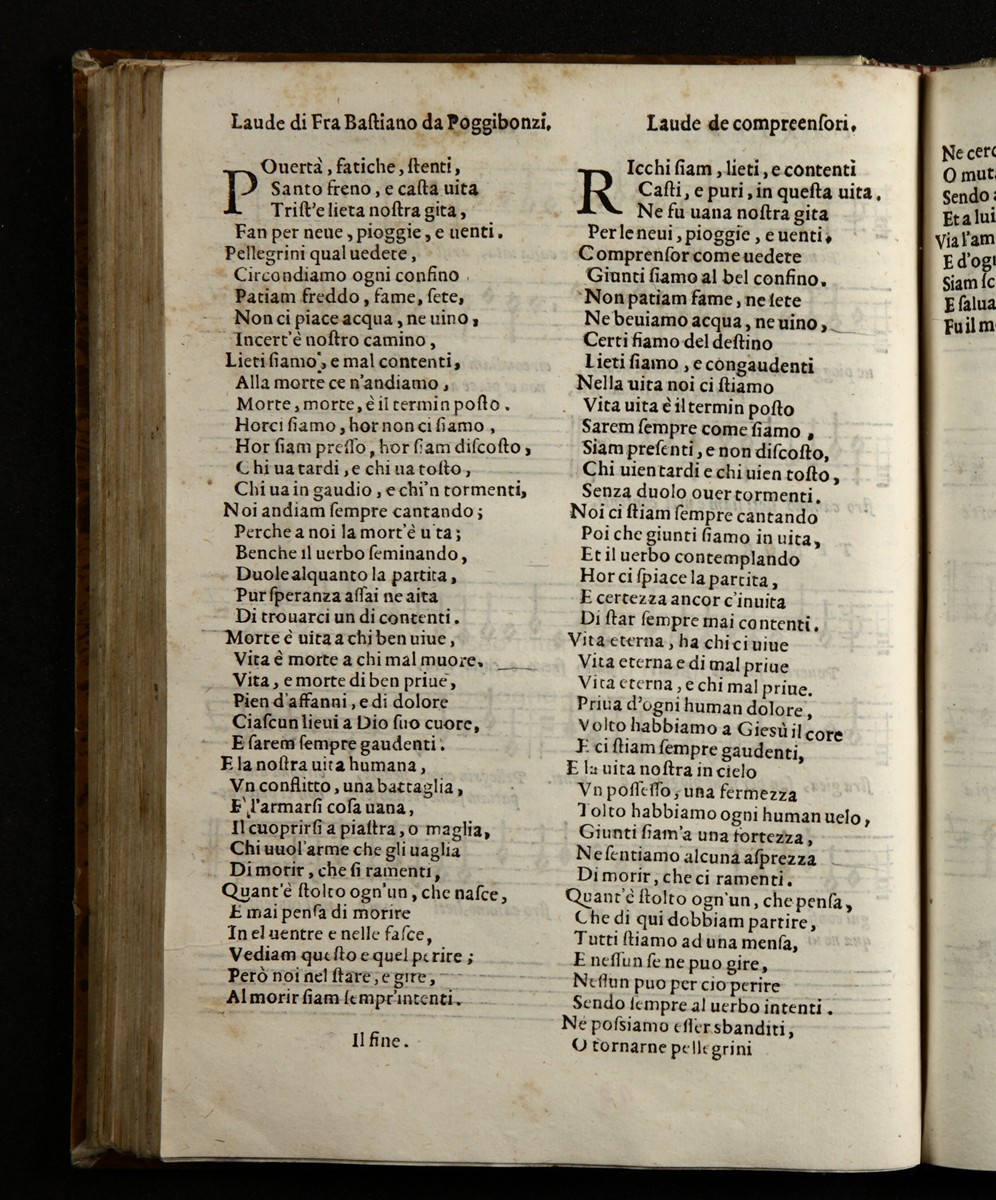 Laude di Fra Baſtiano da Poggibonzi.
POuertà, fatiche, ſtenti,
Santo freno, e caſta uita
Triſt'e lieta noſtra gita,
Fan per neue, pioggie, e uenti.
Pellegrini qual uedete,
Circondiamo ogni confino
Patiam freddo, fame, ſete,
Non ci piace acqua, ne uino,
Incert'è noſtro camino,
Lieti ſiamo, e mal contenti,
Alla morte ce n'andiamo,
Morte, morte, è il termin poſto.
Horci ſiamo, hor non ci ſiamo,
Hor ſiam preſſo, hor ſiam diſcoſto,
Chi ua tardi, e chi ua toſto,
Chi ua in gaudio, e chi'n tormenti,
Noi andiam ſempre cantando;
Perche a noi la mort'è uita;
Benche il uerbo ſeminando,
Duole alquanto la partita,
Pur ſperanza aſſai ne aita
Di trouarci un di contenti.
Morte è uita a chi ben uiue,
Vita è morte a chi mal muore.
Vita, e morte di ben priue,
Pien d'affanni, e di dolore
Ciaſcun lieui a Dio ſuo cuore,
E ſarem ſempre gaudenti.
E la noſtra uita humana,
Vn conflitto, una battaglia,
E' l'armarſi coſa uana,
Il cuoprirſi a piaſtra, o maglia,
Chi uuol'arme che gli uaglia
Di morir, che ſi ramenti,
Quant'è ſtolto ogn'un, che naſce,
E mai penſa di morire
In el uentre e nelle faſce,
Vediam queſto e quel perire;
Però noi nel ſtare, e gire,
Al morir ſiam ſempr'intenti.
Il fine.
Laude de compreenſori.
RIcchi ſiam, lieti, e contenti
Caſti, e puri, in queſta uita.
Ne fu uana noſtra gita
Per le neui, pioggie, e uenti,
Comprenſor come uedete
Giunti ſiamo al bel confino.
Non patiam fame, ne ſete
Ne beuiamo acqua, ne uino,
Certi ſiamo del deſtino
Lieti ſiamo, e congaudenti
Nella uita noi ci ſtiamo
Vita uita è il termin poſto
Sarem ſempre come ſiamo,
Siam preſenti, e non diſcoſto,
Chi uien tardi e chi uien toſto,
Senza duolo ouer tormenti.
Noi ci ſtiam ſempre cantando
Poi che giunti ſiamo in uita,
Et il uerbo contemplando
Hor ci ſpiace la partita,
E certezza ancor c'inuita
Di ſtar ſempre mai contenti.
Vita eterna, ha chi ci uiue
Vita eterna e di mal priue
Vita eterna, e chi mal priue.
Priua d'ogni human dolore,
Volto habbiamo a Gieſù il core
E ci ſtiam ſempre gaudenti,
E la uita noſtra in cielo
Vn poſſeſſo, una fermezza
Tolto habbiamo ogni human uelo,
Giunti ſiam'a una fortezza,
Ne ſentiamo alcuna aſprezza
Di morir, che ci ramenti.
Quant'è ſtolto ogn'un, che penſa,
Che di qui dobbiam partire,
Tutti ſtiamo ad una menſa,
E neſſun ſe ne puo gire,
Neſſun puo per cio perire
Sendo ſempre al uerbo intenti.
Ne poſsiamo eſſer sbanditi,
O tornarne pellegrini
Ne cerc
O mut
Sendo
Et a lui
Via l'am
E d'og
Siam ſc
E ſalua
Fu il m